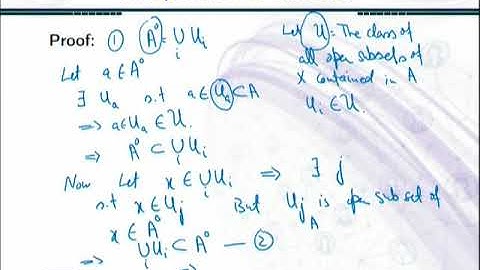 Proof: ① A° = ∪ᵢ Uᵢ
Let 𝒰 = The class of
all open subsets of
X contained in A
Uᵢ ∈ 𝒰.
Let a ∈ A°
∃ Uₐ s.t a ∈ Uₐ ⊂ A
⇒ a ∈ Uₐ ∈ 𝒰.
⇒ A° ⊂ ∪ᵢ Uᵢ
Now Let x ∈ ∪ᵢ Uᵢ ⇒ ∃ j
s.t x ∈ Uⱼ But Uⱼ is open subset of
x ∈ A° A
⇒ ∪ᵢ Uᵢ ⊂ A° — ②
⇒